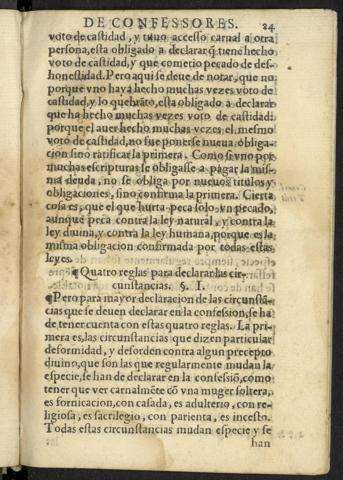 DE CONFESSORES. 24
voto de castidad, y tuuo accesso carnal a otra
persona, esta obligado a declarar q̃ tiene hecho
voto de castidad, y que cometio pecado de des-
honestidad. Pero aqui se deue de notar, que no
porque vno haya hecho muchas vezes voto de
castidad, y lo quebrãto, esta obligado a declarar
que ha hecho muchas vezes voto de castidad:
porque el auer hecho muchas vezes el mesmo
voto de castidad, no fue ponerse nueua obliga-
cion sino ratificar la primera. Como si vno por
muchas escripturas se obligasse a pagar la mis-
ma deuda, no se obliga por nueuos titulos y
obligaciones, sino confirma la primera. Cierta
cosa es, que el que hurta peca solo vn pecado,
aunque peca contra la ley natural, y contra la
ley diuina, y contra la ley humana, porque es la
misma obligacion confirmada por todas estas
leyes.
¶ Quatro reglas para declarar las cir-
cunstancias. §. I.
¶ Pero para mayor declaracion de las circunstã-
cias que se deuen declarar en la confession, se ha
de tener cuenta con estas quatro reglas. La pri-
mera es, las circunstancias que dizen particular
deformidad, y desorden contra algun precepto
diuino, que son las que regularmente mudan la
especie, se han de declarar en la confessiõ, como
tener que ver carnalmẽte cõ vna muger soltera,
es fornicacion, con casada, es adulterio, con re-
ligiosa, es sacrilegio, con parienta, es incesto.
Todas estas circunstancias mudan especie y se
han